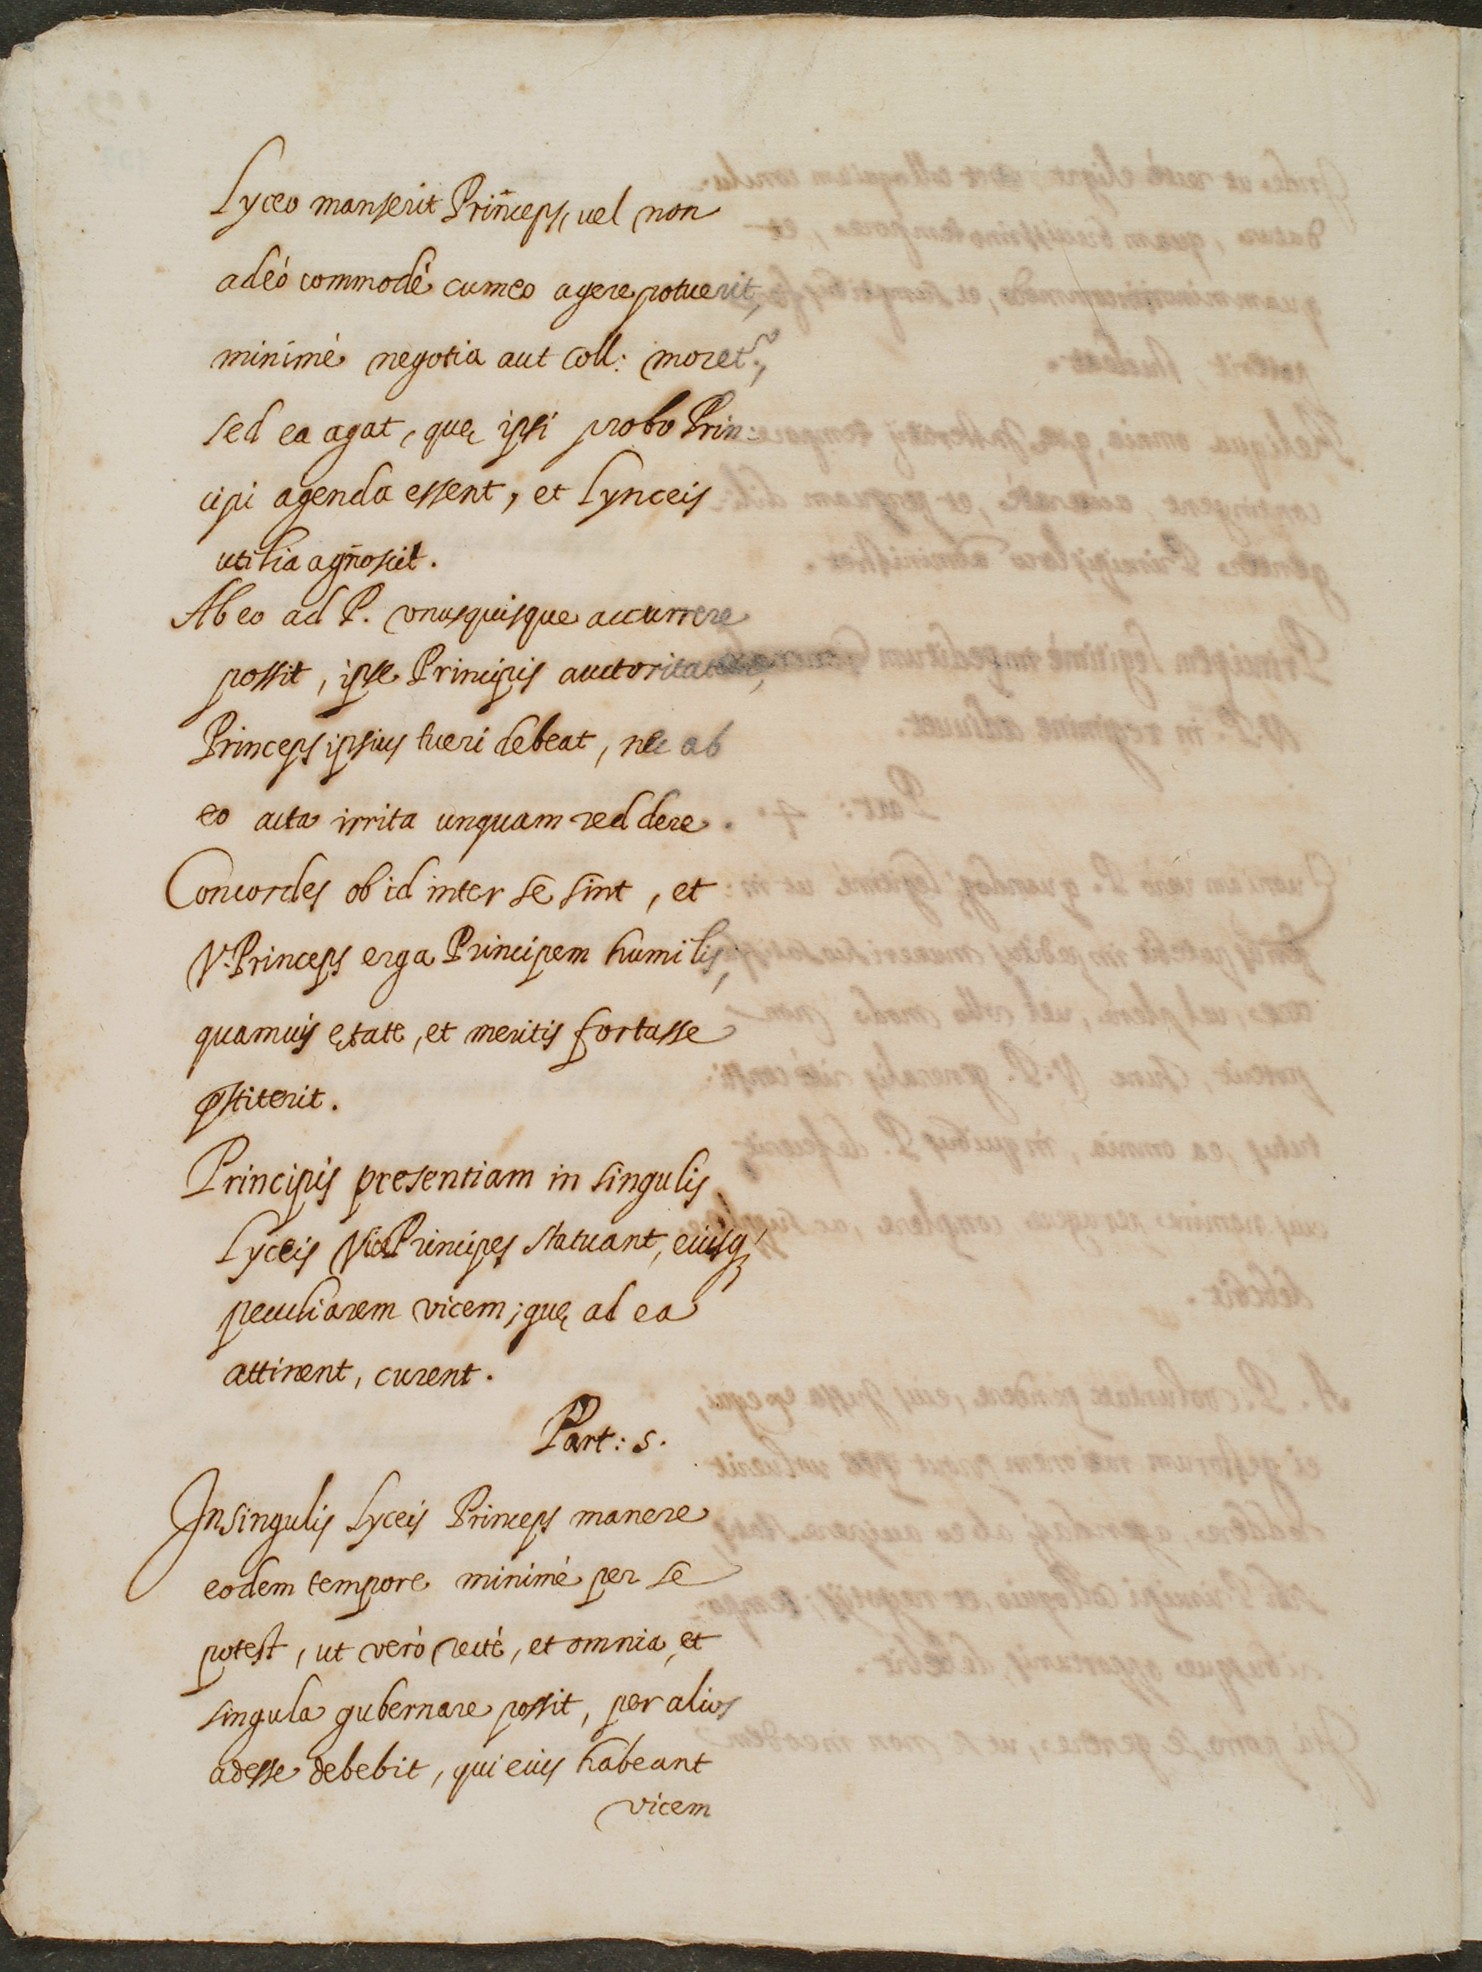 Lyceo manserit Princeps, uel non
adeò commodè cum eo agere potuerit,
minimè negotia aut Coll: moret.^r,
sed ea agat, quę ipsi probo Prin:
cipi agenda essent, et Lynceis
utilia agnoscit.
Ab eo ad P. vnusquisque accurrere
possit, ipse Principis auctoritatem,
Princeps ipsius tueri debeat, nec ab
eo acta irrita unquam reddere.
Concordes ob id inter se sint, et
V. Princeps erga Principem humilis,
quamuis ętate, et meritis fortasse
pstiterit.
Principis presentiam in singulis
Lyceis Vice Principes statuant, eiusq;
peculiarem vicem; quę ad ea
attinent, curent.
Part: 5.
In singulis Lyceis Princeps manere
eodem tempore minimè per se
potest, ut verò rectè, et omnia, et
singula gubernare possit, per alios
adesse debebit, qui eius habeant
vicem